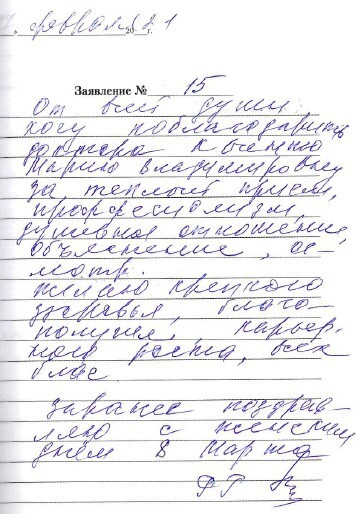 февраля 2021 г.
Заявление № 15
От всей души
хочу поблагодарить
доктора
Марию Владимировну
за теплый прием,
профессионализм,
душевное отношение,
объяснение, ос-
мотр.
Желаю крепкого
здоровья, благо
получия, карьер-
ного роста, всех
благ.
Заранее поздрав
ляю с женским
днём 8 Марта